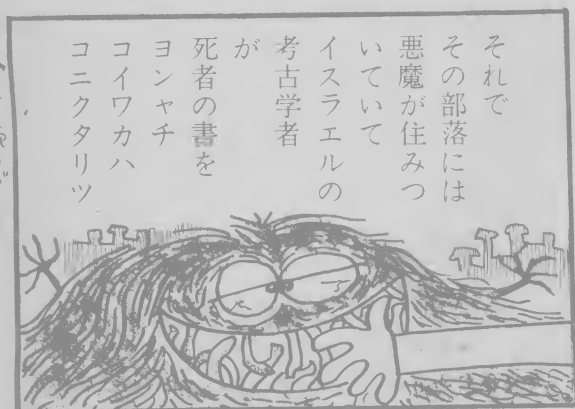 それで
その部落には
悪魔が住みつ
いていて
イスラエルの
考古学者
が
死者の書を
ヨンャチ
コイワカハ
コニクタリツ